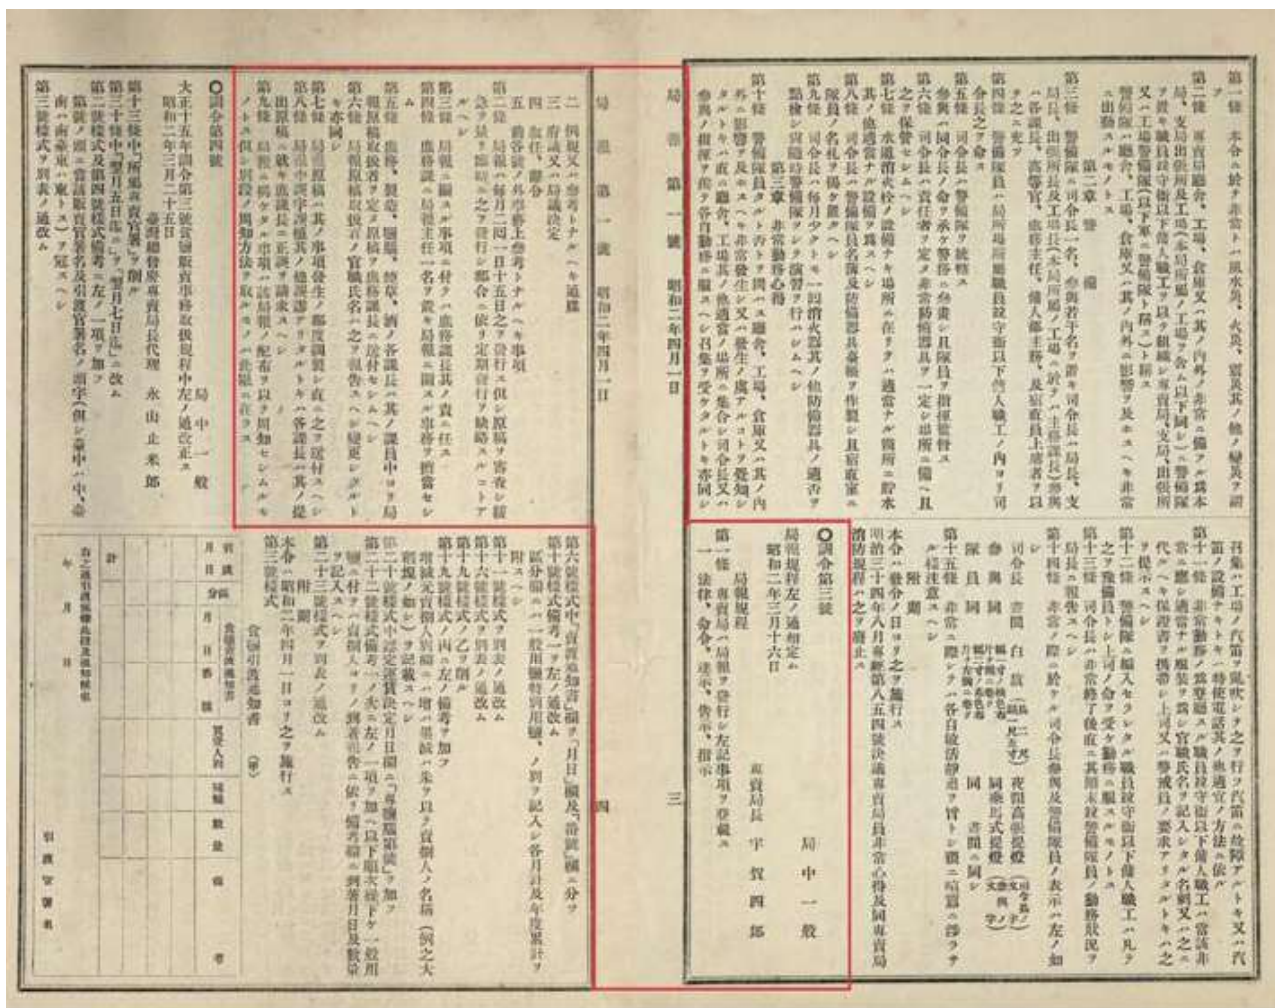 第一條　本令ニ於テ非常トハ風水災、火災、震災其ノ他ノ變災ヲ謂
フ
第二條　專賣局廳舍、工場、倉庫又ハ其ノ內外ノ非常ニ備フル爲本
局、支局出張所及工場(本局所屬ノ工場ヲ含ム以下同シ)ニ警備隊
ヲ置キ職員竝守衞以下傭人職工ヲ以テ組織シ專賣局、支局、出張所
又ハ工場警備隊(以下單ニ警備隊ト稱ス)ト稱ス
警備隊ハ廳舍、工場、倉庫又ハ其ノ內外ニ影響ヲ及ホスヘキ非常
ニ出動スルモノトス
第二章　警　備
第三條　警備隊ニ司令長一名、參與若干名ヲ置キ司令長ハ局長、支
局長、出張所長及工場長(本局所屬ノ工場ニ於テハ主務課長)參與
ハ各課長、高等官、庶務主任、傭人部主務、及宿直員上席者ヲ以
テ之ニ充ツ
第四條　警備隊員ハ局所場所屬職員竝守衞以下傭人職工ノ內ヨリ司
令長之ヲ命ス
第五條　司令長ハ警備隊ヲ統轄ス
參與ハ司令長ノ命ヲ承ケ警務ニ參畫シ且隊員ヲ指揮監督ス
第六條　司令長ハ責任者ヲ定メ非常防備器具ヲ一定シ場所ニ備ヘ且
之ヲ保管セシムヘシ
第七條　水道消火栓ノ設備ナキ場所ニ在リテハ適當ナル箇所ニ貯水
其ノ他適當ナル設備ヲ爲スヘシ
第八條　司令長ハ警備隊員名簿及防備器具臺帳ヲ作製シ且宿直室ニ
隊員ノ名札ヲ揭ケ置クヘシ
第九條　司令長ハ每月少クトモ一回消火器其ノ他防備器具ノ適否ヲ
點檢シ尙隨時警備隊ヲシテ演習ヲ行ハシムヘシ
第三章　非常勤務心得
第十條　警備隊員タルト否トヲ問ハス廳舍、工場、倉庫又ハ其ノ內
外ニ影響ヲ及ホスヘキ非常發生シ又ハ發生ノ虞アルコトヲ覺知シ
タルトキハ直ニ廳舍、工場其ノ他適當ノ場所ニ集合シ司令長又ハ
參與ノ指揮ヲ俟テ各自勤務ニ服スヘシ召集ヲ受ケタルトキ亦同シ
召集ハ工場ノ汽笛ヲ亂吹シテ之ヲ行フ汽笛ニ故障アルトキ又ハ汽
笛ノ設備ナキトキハ特使電話其ノ他適宜ノ方法ニ依ル
第十一條　非常勤務ノ爲登廳スル職員竝守衞以下傭人職工ハ當該非
常ニ應シ適當ナル服裝ヲ爲シ官職氏名ヲ記入シタル名刺又ハ之ニ
代ルヘキ保證書ヲ携帶シ上司又ハ警戒員ノ要求アリタルトキハ之
ヲ提示スヘシ
第十二條　警備隊ニ編入セラレタル職員竝守衞以下傭人職工ハ凡テ
之ヲ豫備員トシ上司ノ命ヲ受ケ勤務ニ服スルモノトス
第十三條　司令長ハ非常終了後直ニ其顚末竝警備隊員ノ勤務狀況ヲ
局長ニ報告スヘシ
第十四條　非常ノ際ニ於ケル司令長參與及警備隊員ノ表示ハ左ノ如
シ
司令長　晝間　白旗　夜間高張提燈
參與　同　同乘馬式提燈
隊員　同　同　晝間ニ同シ
第十五條　非常ニ際シテハ各自敏活靜肅ヲ旨トシ猥ニ喧囂ニ涉ラサ
ル樣注意スヘシ
附則
本令ハ發令ノ日ヨリ之ヲ施行ス
明治三十四年八月專經第八五四號決議專賣局員非常心得及同專賣局
消防規程ハ之ヲ廢止ス
〇訓令第三號
局中一般
局報規程左ノ通相定ム
昭和二年三月十六日
專賣局長　宇賀四郎
局報規程
第一條　專賣局ハ局報ヲ發行シ左記事項ヲ登載ス
一　法律、命令、達示、告示、指示
局報　第一號　昭和二年四月一日　三
局報　第一號　昭和二年四月一日　四
二　例規又ハ參考トナルヘキ通牒
三　府議又ハ局議決定
四　敍任、辭令
五　前各號ノ外事務上參考トナルヘキ事項
第二條　局報ハ每月二回一日十五日之ヲ發行ス但シ原稿ヲ審査シ緩
急ヲ量リ臨時ニ之ヲ發行シ都合ニ依リ定期發行ヲ缺略スルコトア
ルヘシ
第三條　局報ニ關スル事項ニ付テハ庶務課長其ノ責ニ任ス
第四條　庶務課ニ局報主任一名ヲ置キ局報ニ關スル事務ヲ擔當セシ
ム
第五條　庶務、製造、鹽腦、煙草、酒ノ各課長ハ其ノ課員中ヨリ局
報原稿取扱者ヲ定メ原稿ヲ庶務課長ニ送付セシムヘシ
第六條　局報原稿取扱者ノ官職氏名ハ之ヲ報告スヘシ變更シタルト
キ亦同シ
第七條　局報原稿ハ其ノ事項發生ノ都度調製シ直ニ之ヲ送付スヘシ
第八條　局報中誤字誤植其ノ他誤謬アリタルトキハ各課長ハ其ノ提
出原稿ニ就キ庶務課長ニ正誤ヲ請求スヘシ
第九條　局報ニ揭ケタル事項ハ該局報ノ配布ヲ以テ周知セシムルモ
ノトス但シ別段ノ周知方法ヲ取ルモノハ此限ニ在ラス
〇訓令第四號
局中一般
大正十五年訓令第三號食鹽販賣事務取扱規程中左ノ通改正ス
昭和二年三月二十五日
臺灣總督府專賣局長代理　永山止米郎
第十三條中「所屬ノ賣官署」ヲ削ル
第三十條中「翌月五日迄ニ」ヲ「翌月七日迄」ニ改ム
第二號樣式及第四號樣式備考ニ左ノ一項ヲ加フ
第號ノ頭ニ當該販賣官署名及引渡官署名ノ頭字(但シ臺中ハ中、臺
南ハ南臺東ハ東トス)ヲ冠スヘシ
第三號樣式ヲ別表ノ通改ム
第六號樣式中「賣渡通知書」欄ヲ「月日」欄及「番號」欄ニ分ツ
第十號樣式備考一ヲ左ノ通改ム
區分欄ニハ一般用鹽特別用鹽、ノ別ヲ記入シ各月計及年度累計ヲ
附スヘシ
第十六號樣式ヲ別表ノ通改ム
第十九號樣式ノ乙ヲ削ル
第十九號樣式ノ丙ニ左ノ備考ヲ加フ
第二十號樣式中認定運賃決定月日欄ニ「專鹽腦第號」ヲ加フ
第二十二號樣式備考一ノ次ニ左ノ一項ヲ加ヘ以下順次繰下ケ一般用
鹽ニ付テハ賣捌人ヨリノ到著報告ニ依リ備考欄ニ到著月日及數量
ヲ記入スヘシ
第二十三號樣式ヲ別表ノ通改ム
附則
本令ハ昭和二年四月一日ヨリ之ヲ施行ス
第三號樣式
食鹽引渡通知書　(甲)
引渡月日
區分
食鹽賣渡通知書
月日
番號
買受人別
鹽種
數量
備考
計
年　月　日
引渡官署名